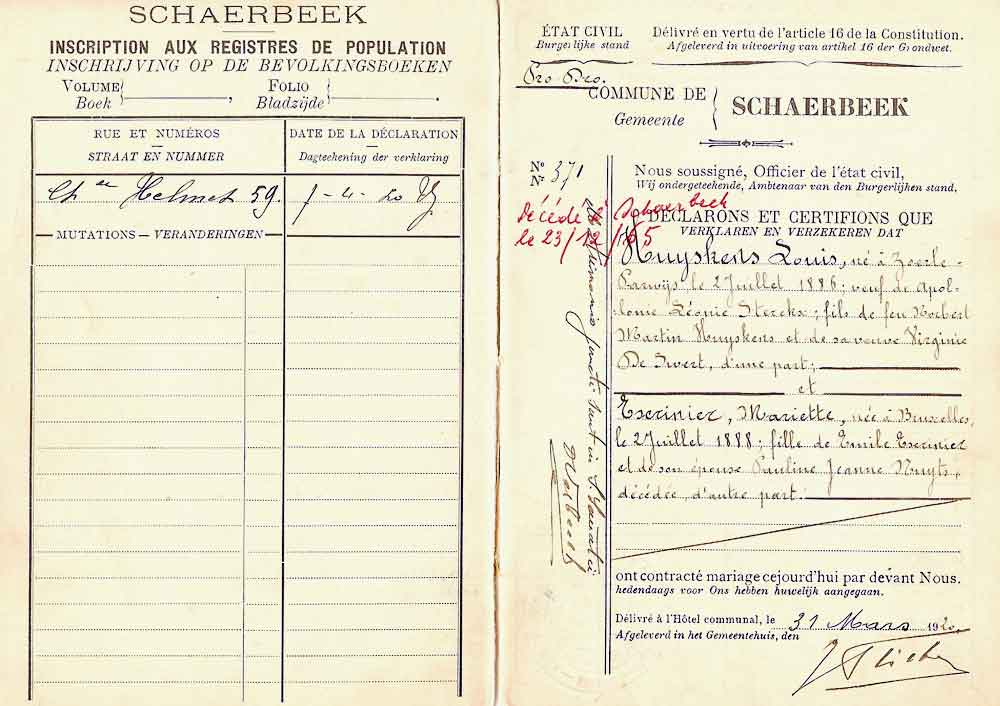 SCHAERBEEK
INSCRIPTION AUX REGISTRES DE POPULATION
INSCHRIJVING OP DE BEVOLKINGSBOEKEN
VOLUME
Boek
FOLIO
Bladzijde
RUE ET NUMÉROS
STRAAT EN NUMMER
DATE DE LA DÉCLARATION
Dagteekening der verklaring
Ch ée Helmet 59.
7-4-20
MUTATIONS — VERANDERINGEN
ÉTAT CIVIL
Burgerlijke stand
Délivré en vertu de l'article 16 de la Constitution.
Afgeleverd in uitvoering van artikel 16 der Grondwet.
Pro Deo.
COMMUNE DE
Gemeente
SCHAERBEEK
Nº 371
Nr
Nous soussigné, Officier de l'état civil,
Wij ondergeteekende, Ambtenaar van den Burgerlijken stand,
Décédé à Schaerbeek
le 23/12/65
DÉCLARONS ET CERTIFIONS QUE
VERKLAREN EN VERZEKEREN DAT
Nuyskens Louis, né à Zoerle-
Parwijs le 2 Juillet 1886; veuf de Apol-
lonie Léonie Sterckx; fils de feu Norbert
Martin Nuyskens et de sa veuve Virginie
De Swert, d'une part;
et
Tscrinier, Mariette, née à Bruxelles,
le 2 Juillet 1888; fille de Emile Tscrinier
et de son épouse Pauline Jeanne Nuyts,
décédée, d'autre part.
matrimonio juncti sunt in
ont contracté mariage cejourd'hui par devant Nous.
hedendaags voor Ons hebben huwelijk aangegaan.
Délivré à l'Hôtel communal, le 31 Mars 1920.
Afgeleverd in het Gemeentehuis, den